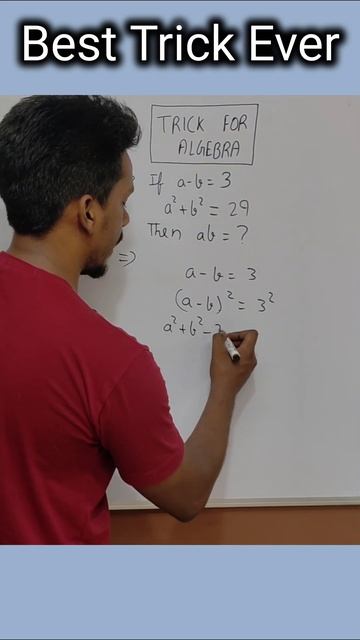 Best Trick Ever
TRICK FOR
ALGEBRA
If a-b = 3
a² + b² = 29
Then ab = ?
⇒)
a - b = 3
(a - b)² = 3²
a² + b² - 2